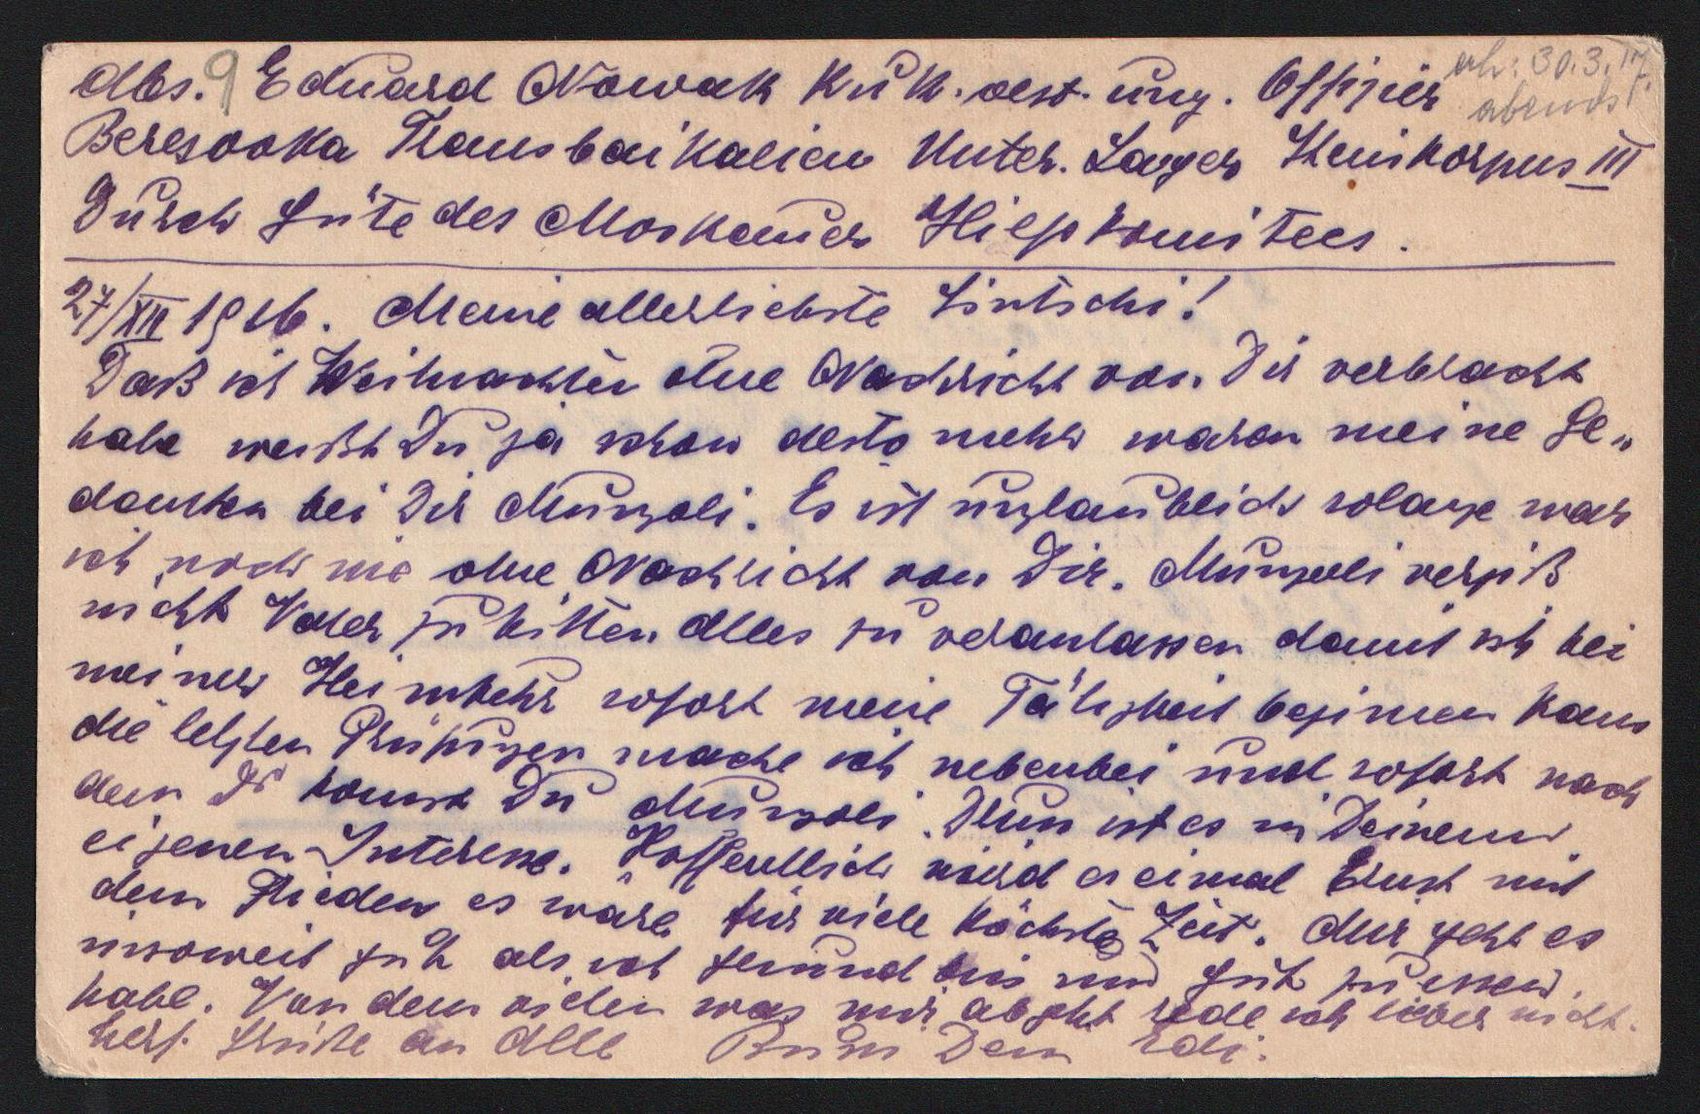 Abs. 9 Eduard Nowak K u K. oest. ung. Offizier erh: 30.3.17
Beresovka Transbaikalien Unter. Lager abends
Durch Güte des Moskauer Hilfskomitees.
27/XII 1916. Meine allerliebste Lintschi!
Daß ich Weihnachten ohne Nachricht von Dir verbracht
habe weißt Du ja schon desto mehr waren meine Ge„
danken bei Dir Munzoli. Es ist unglaublich solange war
ich noch nie ohne Nachricht von Dir. Munzoli vergiß
nicht Vater zu bitten Alles zu veranlassen damit ich bei
meiner Heimkehr sofort meine Tätigkeit beginnen kann
die letzten Prüfungen mache ich nebenbei und sofort nach
dem Dr kommst Du Munzoli. Nun ist es in Deinem
eigenen Interesse. Hoffentlich wird es einmal Ernst mit
dem Frieden es wäre für viele höchste Zeit. Mir geht es
insoweit gut als ich gesund bin und gut zu essen
habe. Von dem vielen was mir abgeht rede ich lieber nicht.
herz. Grüße an Alle Bussi Dein Edi.